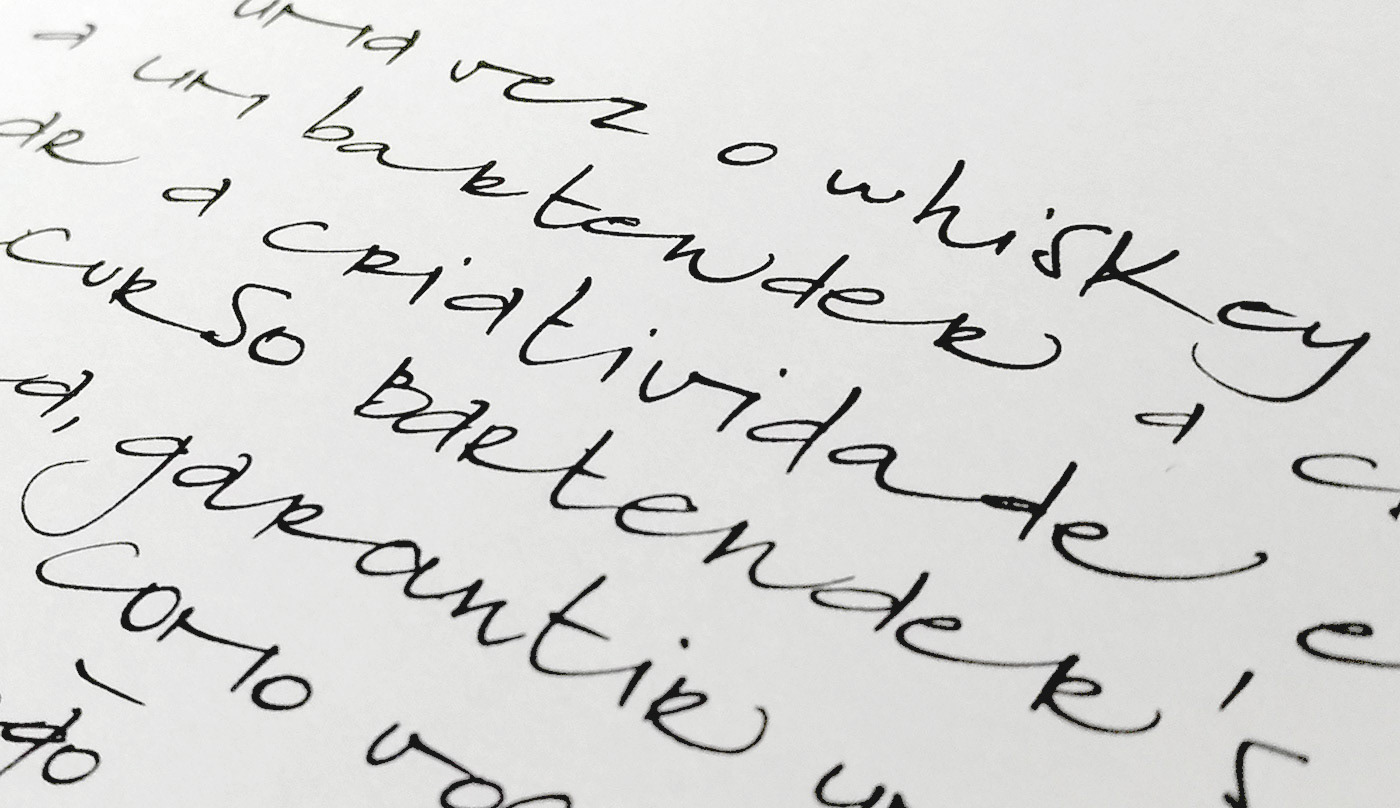 uma vez o whiskey
a um bartender a
de a criatividade e
curso Bartender's
a, garantir
Como